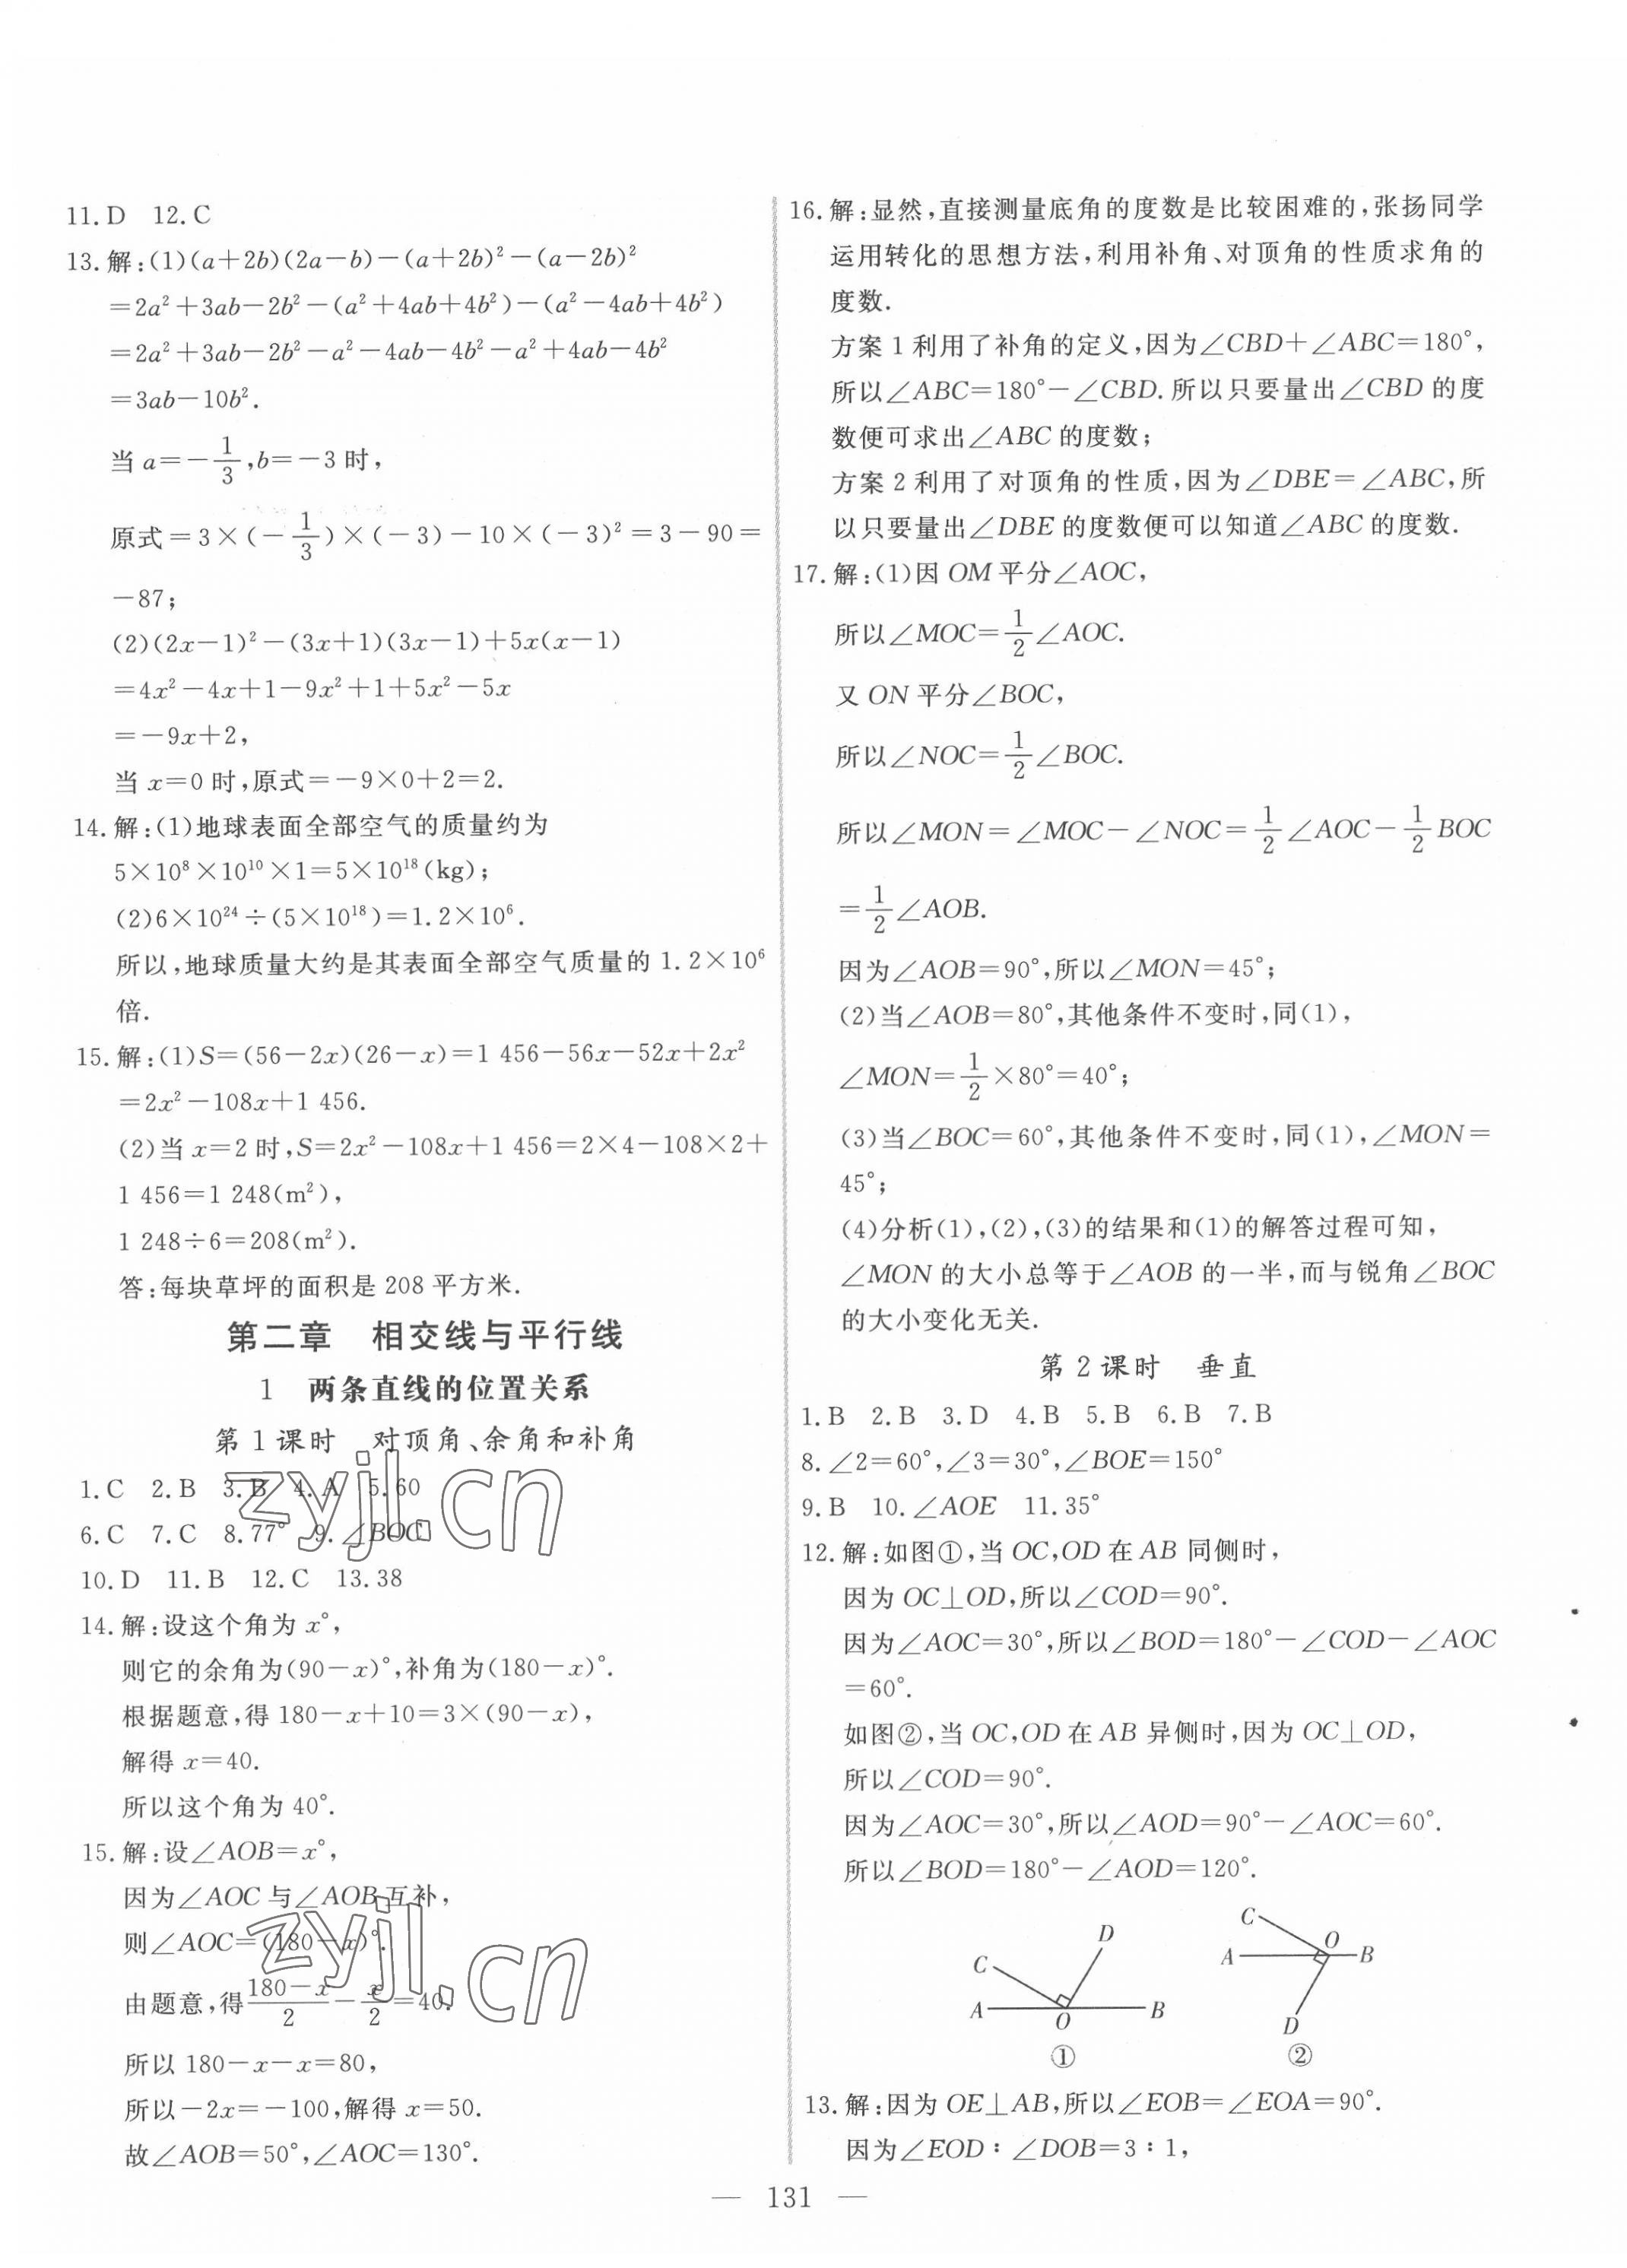 11.D 12.C
13.解:(1)(a+2b)(2a-b)-(a+2b)²-(a-2b)²
=2a²+3ab-2b²-(a²+4ab+4b²)-(a²-4ab+4b²)
=2a²+3ab-2b²-a²-4ab-4b²-a²+4ab-4b²
=3ab-10b².
当 a=-1/3,b=-3 时,
原式=3×(-1/3)×(-3)-10×(-3)²=3-90=
-87;
(2)(2x-1)²-(3x+1)(3x-1)+5x(x-1)
=4x²-4x+1-9x²+1+5x²-5x
=-9x+2,
当 x=0 时,原式=-9×0+2=2.
14.解:(1)地球表面全部空气的质量约为
5×10⁸×10¹⁰×1=5×10¹⁸(kg);
(2)6×10²⁴÷(5×10¹⁸)=1.2×10⁶.
所以,地球质量大约是其表面全部空气质量的 1.2×10⁶
倍.
15.解:(1)S=(56-2x)(26-x)=1 456-56x-52x+2x²
=2x²-108x+1 456.
(2)当 x=2 时,S=2x²-108x+1 456=2×4-108×2+
1 456=1 248(m²),
1 248÷6=208(m²).
答:每块草坪的面积是 208 平方米.
第二章 相交线与平行线
1 两条直线的位置关系
第 1 课时 对顶角、余角和补角
1.C 2.B 3.B 4.A 5.60
6.C 7.C 8.77° 9.∠BOC
10.D 11.B 12.C 13.38
14.解:设这个角为 x°,
则它的余角为(90-x)°,补角为(180-x)°.
根据题意,得 180-x+10=3×(90-x),
解得 x=40.
所以这个角为 40°.
15.解:设∠AOB=x°,
因为∠AOC 与∠AOB 互补,
则∠AOC=(180-x)°.
由题意,得(180-x)/2-x/2=40.
所以 180-x-x=80,
所以-2x=-100,解得 x=50.
故∠AOB=50°,∠AOC=130°.
zyjl.cn
zyjl.cn
16.解:显然,直接测量底角的度数是比较困难的,张扬同学
运用转化的思想方法,利用补角、对顶角的性质求角的
度数.
方案 1 利用了补角的定义,因为∠CBD+∠ABC=180°,
所以∠ABC=180°-∠CBD.所以只要量出∠CBD 的度
数便可求出∠ABC 的度数;
方案 2 利用了对顶角的性质,因为∠DBE=∠ABC,所
以只要量出∠DBE 的度数便可以知道∠ABC 的度数.
17.解:(1)因 OM 平分∠AOC,
所以∠MOC=1/2∠AOC.
又 ON 平分∠BOC,
所以∠NOC=1/2∠BOC.
所以∠MON=∠MOC-∠NOC=1/2∠AOC-1/2BOC
=1/2∠AOB.
因为∠AOB=90°,所以∠MON=45°;
(2)当∠AOB=80°,其他条件不变时,同(1),
∠MON=1/2×80°=40°;
(3)当∠BOC=60°,其他条件不变时,同(1),∠MON=
45°;
(4)分析(1),(2),(3)的结果和(1)的解答过程可知,
∠MON 的大小总等于∠AOB 的一半,而与锐角∠BOC
的大小变化无关.
第 2 课时 垂直
1.B 2.B 3.D 4.B 5.B 6.B 7.B
8.∠2=60°,∠3=30°,∠BOE=150°
9.B 10.∠AOE 11.35°
12.解:如图①,当 OC,OD 在 AB 同侧时,
因为 OC⊥OD,所以∠COD=90°.
因为∠AOC=30°,所以∠BOD=180°-∠COD-∠AOC
=60°.
如图②,当 OC,OD 在 AB 异侧时,因为 OC⊥OD,
所以∠COD=90°.
因为∠AOC=30°,所以∠AOD=90°-∠AOC=60°.
所以∠BOD=180°-∠AOD=120°.
D
C
A O B
①
C
A O B
D
②
13.解:因为 OE⊥AB,所以∠EOB=∠EOA=90°.
因为∠EOD∶∠DOB=3∶1,
— 131 —